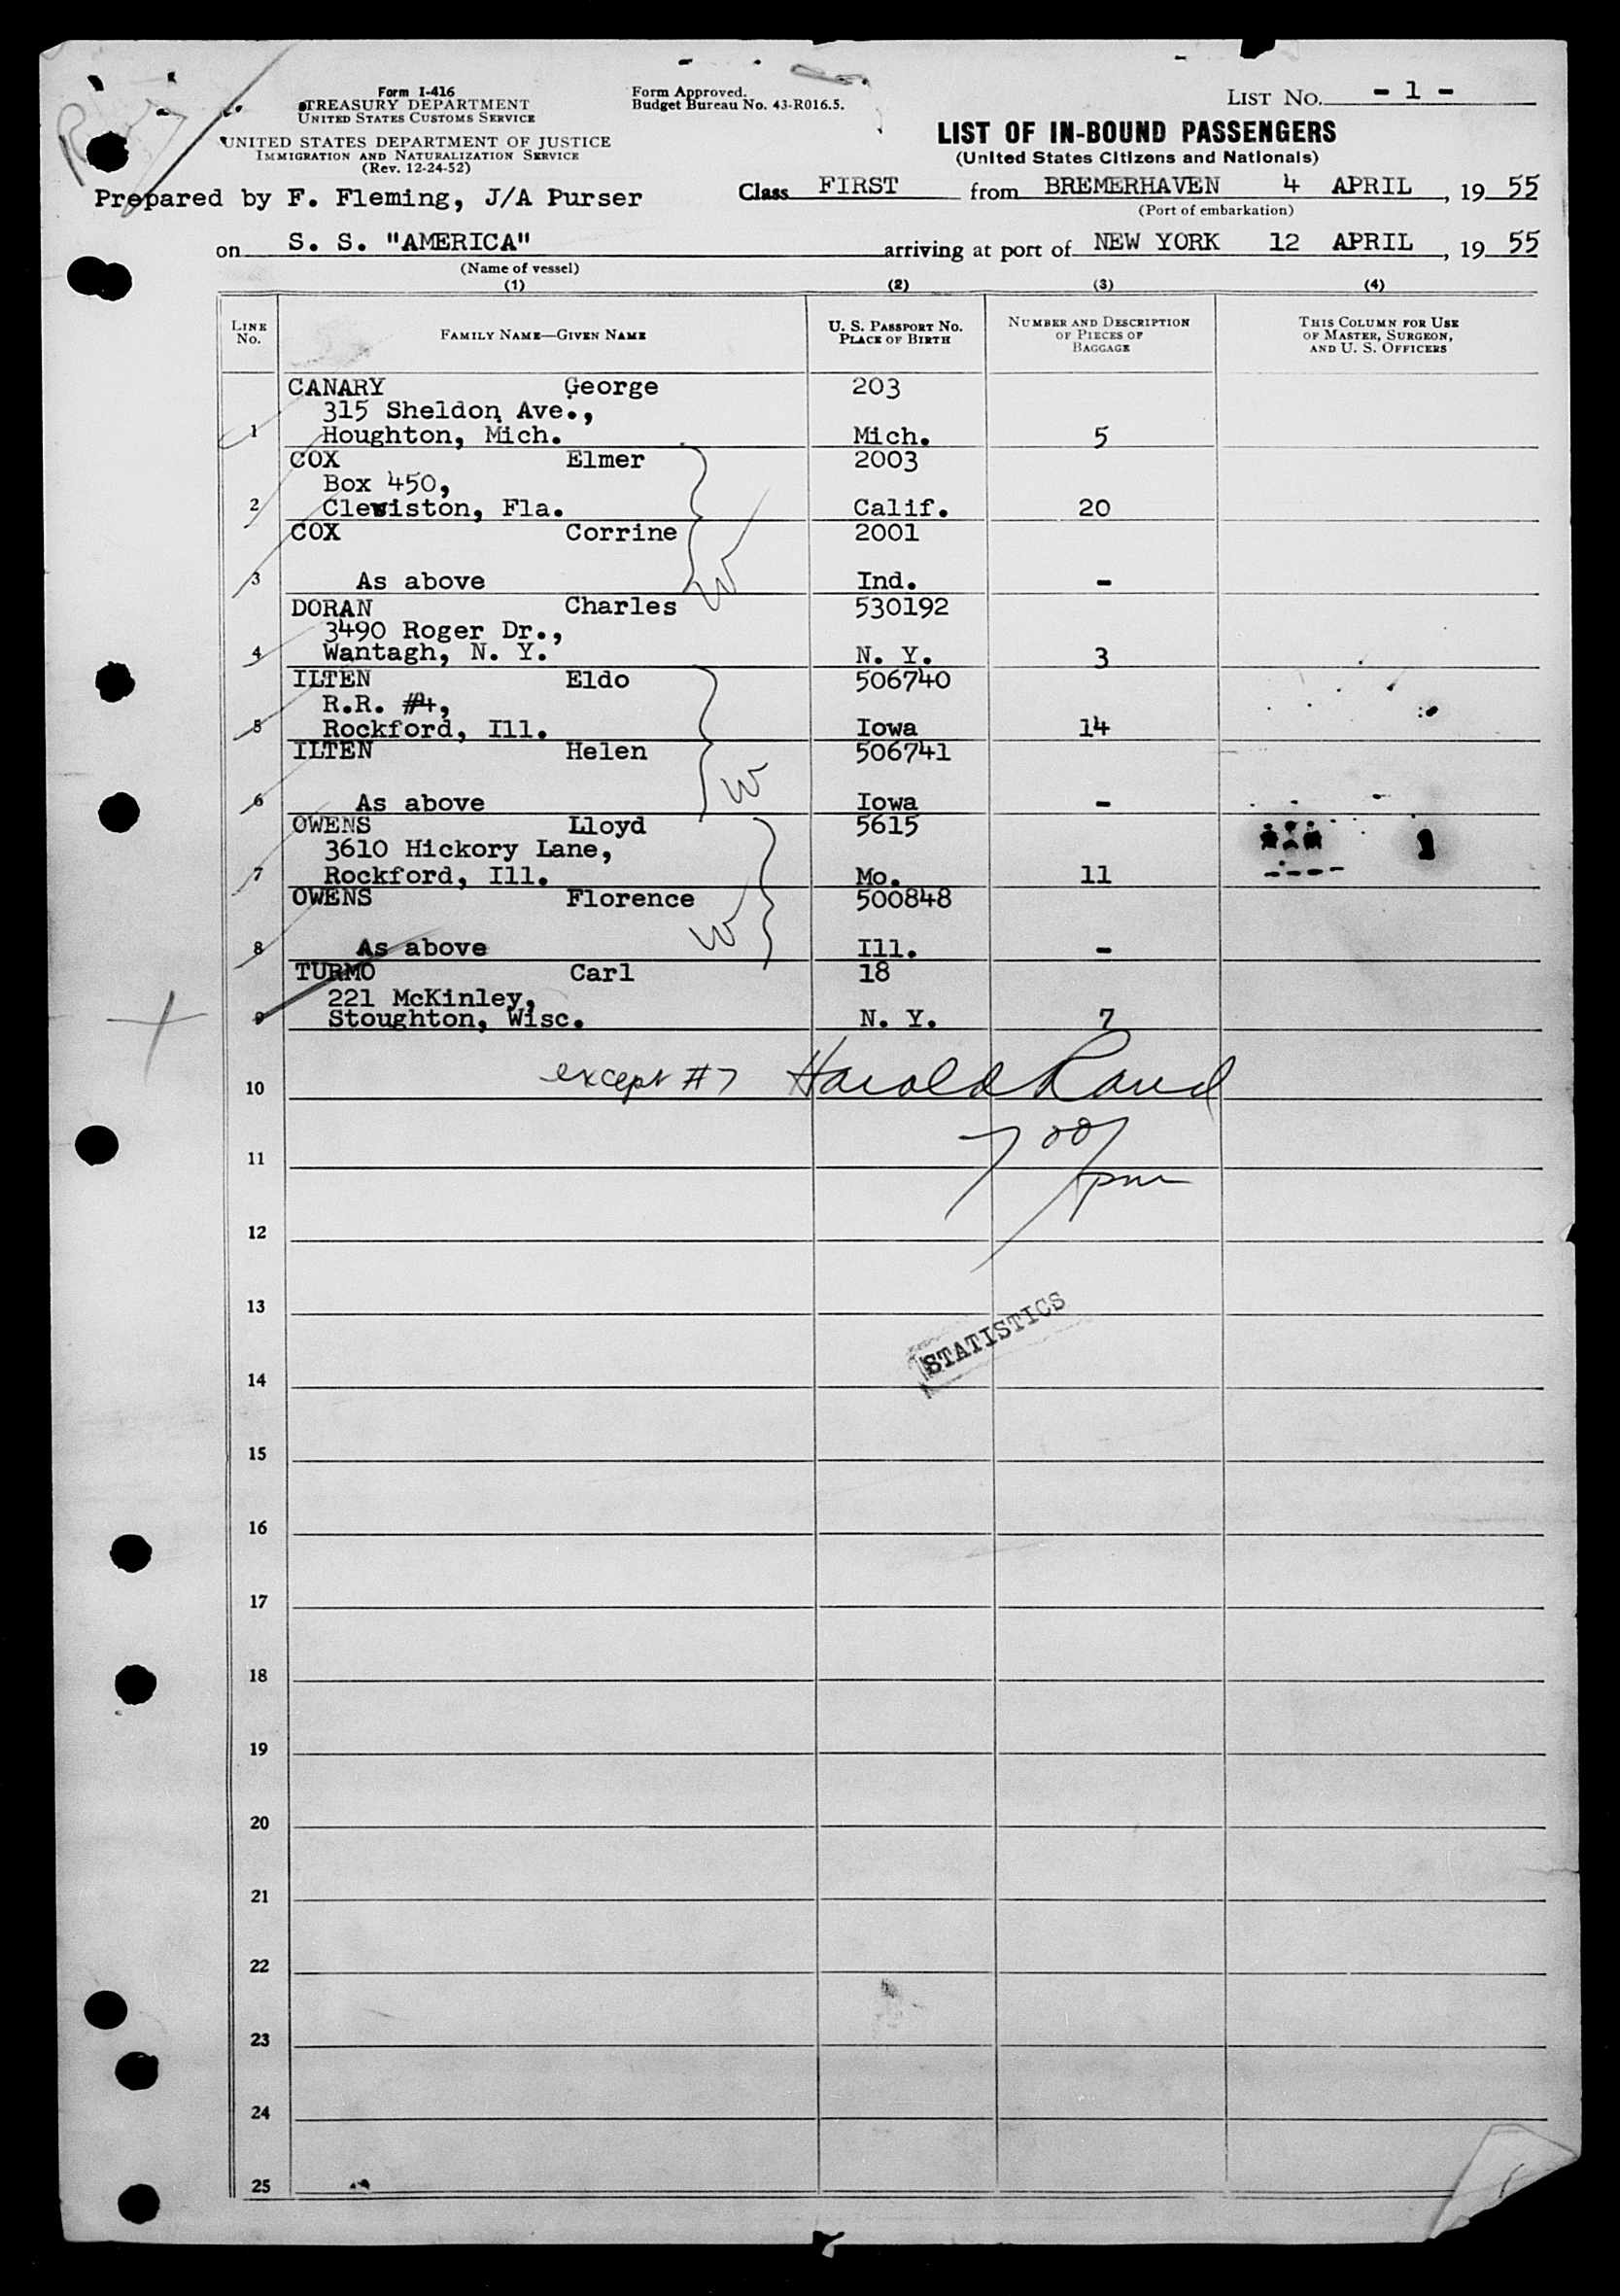 Form I-416
TREASURY DEPARTMENT
UNITED STATES CUSTOMS SERVICE
UNITED STATES DEPARTMENT OF JUSTICE
IMMIGRATION AND NATURALIZATION SERVICE
(Rev. 12-24-52)
Form Approved.
Budget Bureau No. 43-R016.5.
LIST NO. - 1 -
LIST OF IN-BOUND PASSENGERS
(United States Citizens and Nationals)
Prepared by F. Fleming, J/A Purser
Class FIRST from BREMERHAVEN 4 APRIL, 1955
(Port of embarkation)
on S. S. "AMERICA" arriving at port of NEW YORK 12 APRIL, 1955
(Name of vessel)
(1) (2) (3) (4)
LINE No.
FAMILY NAME—GIVEN NAME
U. S. PASSPORT NO.
PLACE OF BIRTH
NUMBER AND DESCRIPTION
OF PIECES OF
BAGGAGE
THIS COLUMN FOR USE
OF MASTER, SURGEON,
AND U. S. OFFICERS
CANARY George 203
315 Sheldon Ave.,
1 Houghton, Mich. Mich. 5
COX Elmer 2003
Box 450,
2 Clewiston, Fla. Calif. 20
COX Corrine 2001
3 As above Ind. -
W
DORAN Charles 530192
3490 Roger Dr.,
4 Wantagh, N. Y. N. Y. 3
ILTEN Eldo 506740
R.R. #4,
5 Rockford, Ill. Iowa 14
ILTEN Helen 506741
W
6 As above Iowa -
OWENS Lloyd 5615
3610 Hickory Lane,
7 Rockford, Ill. Mo. 11
OWENS Florence 500848
W
8 As above Ill. -
TURMO Carl 18
221 McKinley,
9 Stoughton, Wisc. N. Y. 7
10 except #7 Harold Rand
11 7 00 pm
12
13
STATISTICS
14
15
16
17
18
19
20
21
22
23
24
25